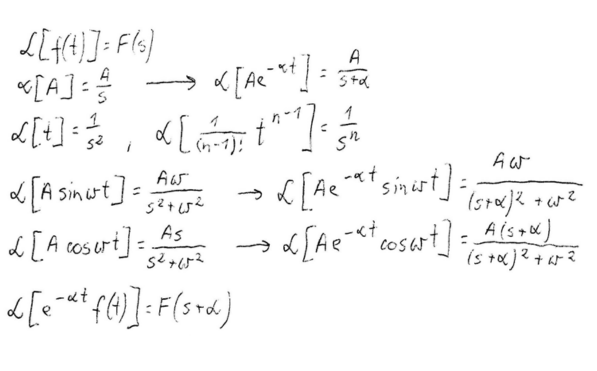 ℒ[f(t)]=F(s)
ℒ[A]=A/s → ℒ[Ae^(-αt)]=A/(s+α)
ℒ[t]=1/s², ℒ[1/(n-1)! t^(n-1)]=1/sⁿ
ℒ[A sinωt]=Aω/(s²+ω²) → ℒ[Ae^(-αt) sinωt]=Aω/((s+α)²+ω²)
ℒ[A cosωt]=As/(s²+ω²) → ℒ[Ae^(-αt) cosωt]=A(s+α)/((s+α)²+ω²)
ℒ[e^(-αt) f(t)]=F(s+α)